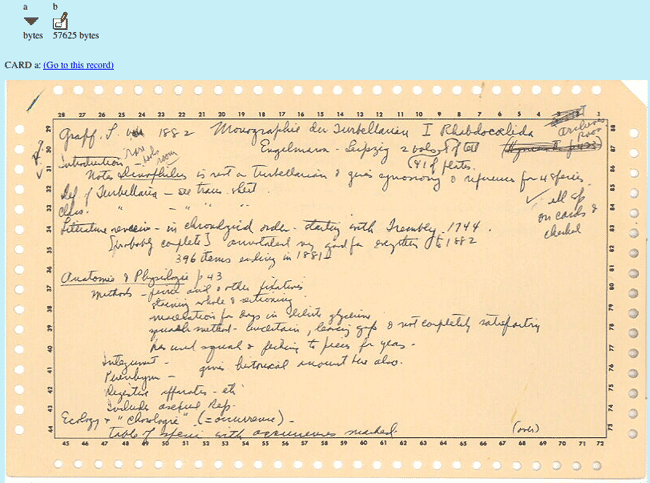 a b
bytes 57625 bytes
CARD a: (Go to this record)
28 27 26 25 24 23 22 21 20 19 18 17 16 15 14 13 12 11 10 9 8 7 6 5 4 3 2 1
Graff, L. 1882 Monographie der Turbellarien I Rhabdocoelida
Engelmann - Leipzig 2 vols of text
Introduction -
(& 1 of plates.
Note Dinophilus is not a turbellarian & gives synonomy & references for 4 species.
Def of Turbellaria - see trans. sheet
Class. " - " " "
all sp. on cards & checked
Literature review - in chronological order - starting with Trembley - 1744.
[probably complete] annotated very good for everything to 1882
396 items ending in 1881
Anatomie & Physiologie p 43
Methods - picric acid & other fixatives
staining whole & sectioning
maceration for days in dilute glycerine
squash method - uncertain, leaving gaps & not completely satisfactory
he used squash & picking to pieces for years -
Integument - gives historical account here also.
Parenchym -
Digestive apparatus - etc
Includes asexual Rep.
Ecology & "Chorologie" (= occurrence) -
Table of species with occurrences marked
(over)
45 46 47 48 49 50 51 52 53 54 55 56 57 58 59 60 61 62 63 64 65 66 67 68 69 70 71 72